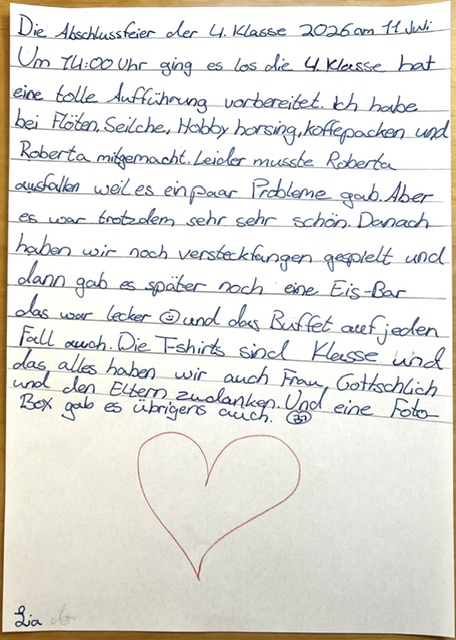 Die Abschlussfeier der 4. Klasse 2026 am 11 Juli
Um 14:00 Uhr ging es los die 4. Klasse hat
eine tolle Aufführung vorbereitet. Ich habe
bei Flöten, Seilche, Hobby horsing, koffepacken und
Roberta mitgemacht. Leider musste Roberta
ausfallen weil es ein paar Probleme gab. Aber
es war trotzdem sehr sehr schön. Danach
haben wir noch versteckfangen gespielt und
dann gab es später noch eine Eis-Bar
das war lecker und das Buffet auf jeden
Fall auch. Die T-shirts sind Klasse und
das alles haben wir auch Frau Gottschlich
und den Eltern zudanken. Und eine Foto-
Box gab es übrigens auch.
Lia